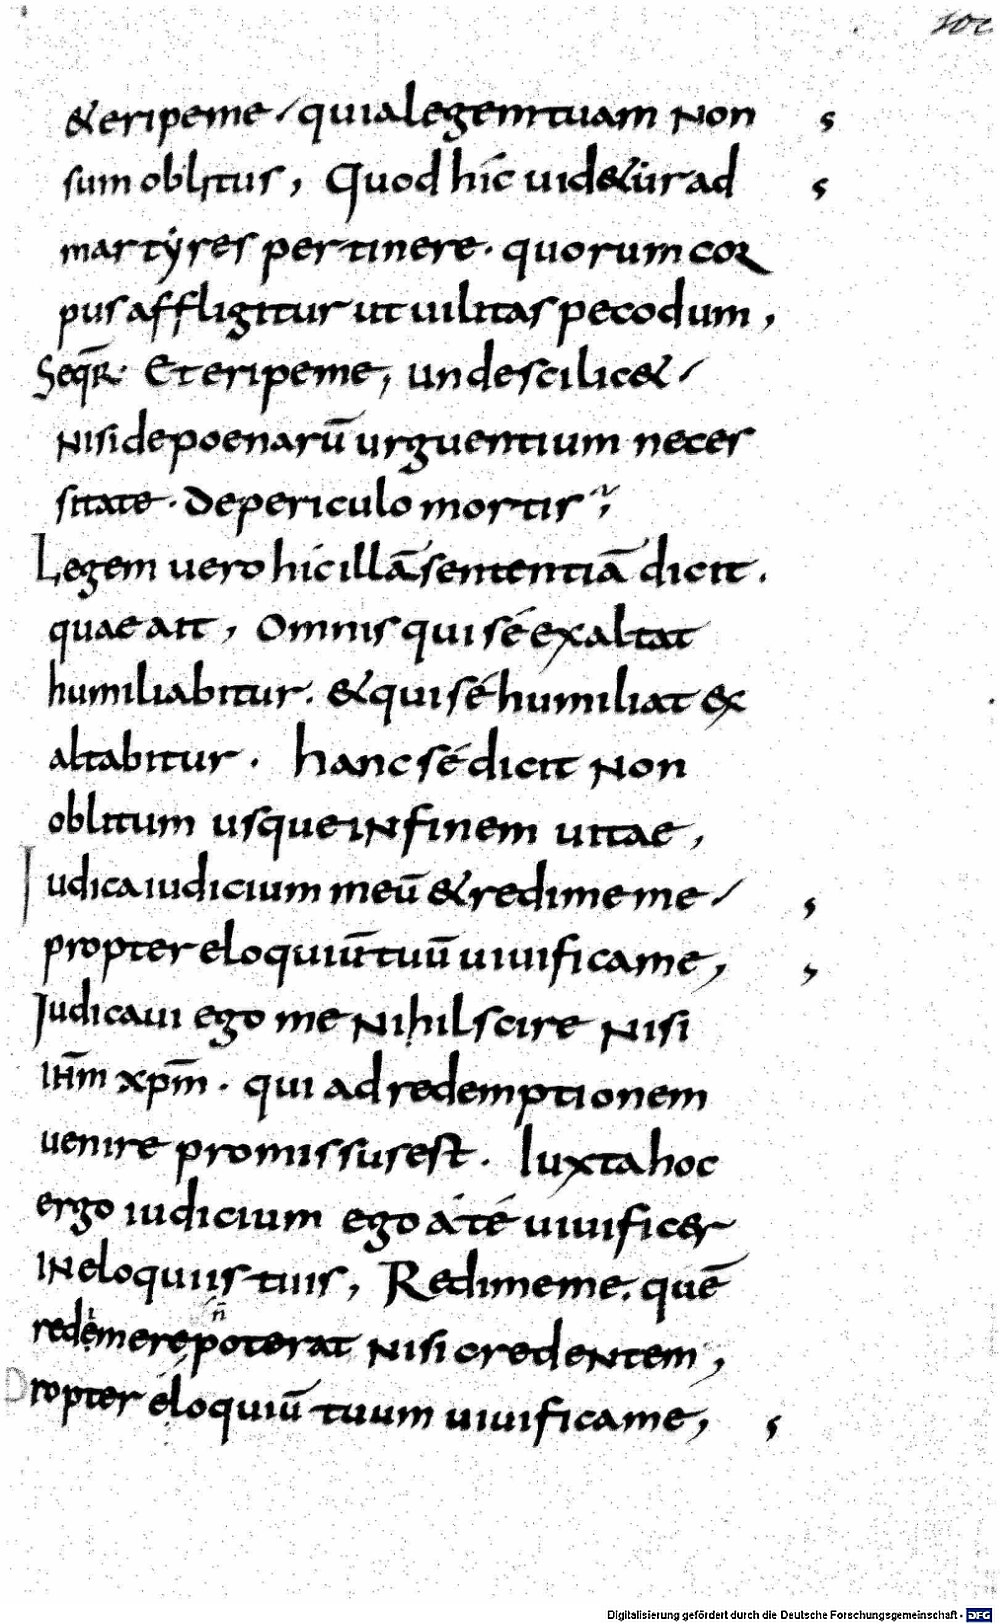 102
&eripeme / quialegemtuam Non
sum oblitus, Quod híc uid&ur ad
martyres pertinere · quorum cor
pus affligitur ut uilitas pecodum,
Seqr̄ · Et eripeme, undescilic& /
Nisi de poenarū urguentium neces
sitate · de periculo mortis;
Legem uero híc illā sententiā dicit .
quae ait, Omnis qui sé exaltat
humiliabitur . & qui sé humiliat ex
altabitur · hanc sé dicit Non
oblitum usque IN finem uitae,
Iudica iudicium meū & redimeme /
propter eloquiū tuū uiuificame,
Iudicaui ego me Nihil scire Nisi
IHm̄ xpm̄ · qui ad redemptionem
uenire promissus est · Iuxta hoc
ergo iudicium ego á té uiuificer
IN eloquiis tuis, Redimeme . quē
redimere n̄ poterat Nisi credeNtem,
Propter eloquiū tuum uiuificame,
Digitalisierung gefördert durch die Deutsche Forschungsgemeinschaft - DFG